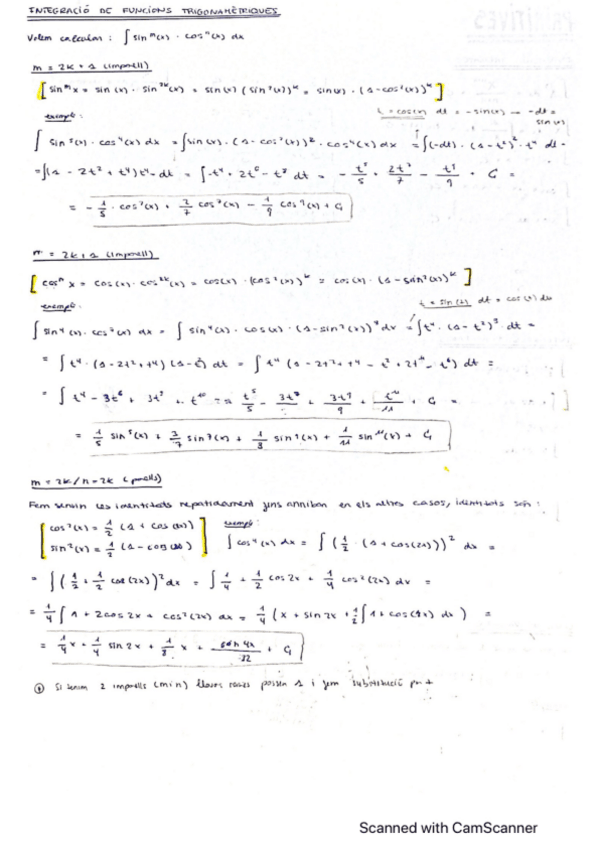 INTEGRACIÓ DE FUNCIONS TRIGONOMÈTRIQUES
Volem calcular : ∫ sinᵐ(x) · cosⁿ(x) dx
m = 2k + 1 (imparell)
[ sinᵐ x = sin(x) · sin²ᵏ(x) = sin(x) (sin²(x))ᵏ = sin(x) · (1-cos²(x))ᵏ ]
exemple :
t = cos(x) dt = -sin(x) → -dt =
sin(x)
∫ sin⁵(x) · cos⁴(x) dx = ∫ sin(x) · (1-cos²(x))² · cos⁴(x) dx = ∫(-dt) · (1-t²)² · t⁴ dt =
= ∫(1 - 2t² + t⁴) t⁴ -dt = ∫ -t⁴ + 2t⁶ - t⁸ dt = - t⁵/5 + 2t⁷/7 - t⁹/9 + C =
= - 1/5 · cos⁵(x) + 2/7 cos⁷(x) - 1/9 cos⁹(x) + C
n = 2k + 1 (imparell)
[ cosⁿ x = cos(x) · cos²ᵏ(x) = cos(x) · (cos²(x))ᵏ = cos(x) · (1-sin²(x))ᵏ ]
exemple :
t = sin(x) dt = cos(x) dx
∫ sin⁴(x) · cos⁷(x) dx = ∫ sin⁴(x) · cos(x) · (1-sin²(x))³ dx = ∫ t⁴ · (1-t²)³ · dt =
= ∫ t⁴ · (1-2t²+t⁴) (1-t²) dt = ∫ t⁴ (1-2t²+t⁴ - t² + 2t⁴ - t⁶) dt =
= ∫ t⁴ - 3t⁶ + 3t⁸ + t¹⁰ = t⁵/5 - 3t⁷/7 + 3t⁹/9 + t¹¹/11 + C =
= 1/5 sin⁵(x) + 3/7 sin⁷(x) + 1/3 sin⁹(x) + 1/11 sin¹¹(x) + C
m = 2k / n = 2k (parells)
Fem servir les identitats repetidament fins arribar en els altres casos, identitats són :
[ cos²(x) = 1/2 (1 + cos(2x)) ] exemple :
[ sin²(x) = 1/2 (1 - cos(2x)) ] ∫ cos⁴(x) dx = ∫ (1/2 · (1 + cos(2x)))² dx =
= ∫ (1/2 + 1/2 cos(2x))² dx = ∫ 1/4 + 1/2 cos 2x + 1/4 cos²(2x) dx =
= 1/4 ∫ 1 + 2cos 2x + cos²(2x) dx = 1/4 (x + sin 2x + 1/2 ∫ 1 + cos(4x) dx) =
= 1/4 x + 1/4 sin 2x + 1/8 x + sin 4x/32 + C
Si tenim 2 imparells (m i n) i fem substitució per t
Scanned with CamScanner